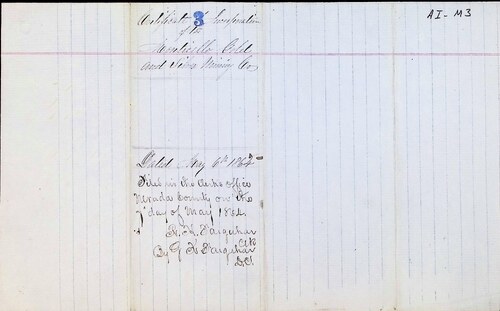 AI-M3
Certificate of Incorporation
3
of the
Monticello Gold
and Silver Mining Co.
Dated May 6th 1864
Filed in the Clerks office
Nevada County on the
7 day of May 1864
R. H. Farquhar
Clk
By G K Farquhar
D.C.